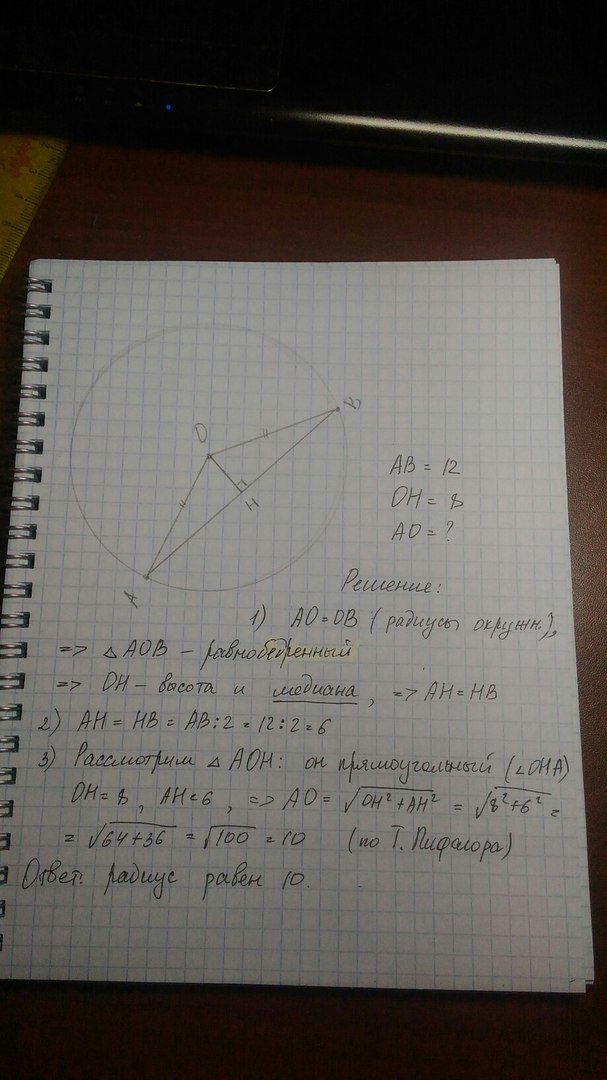 B
O
H
A
AB = 12
OH = 8
AO = ?
Решение:
1) AO=OB (радиусы окружн.),
=> △AOB – равнобедренный
=> OH – высота и медиана, => AH=HB
2) AH = HB = AB:2 = 12:2 = 6
3) Рассмотрим △AOH: он прямоугольный (∠OHA)
OH=8, AH=6, => AO = √OH²+AH² = √8²+6² =
= √64+36 = √100 = 10 (по Т. Пифагора)
Ответ: радиус равен 10.